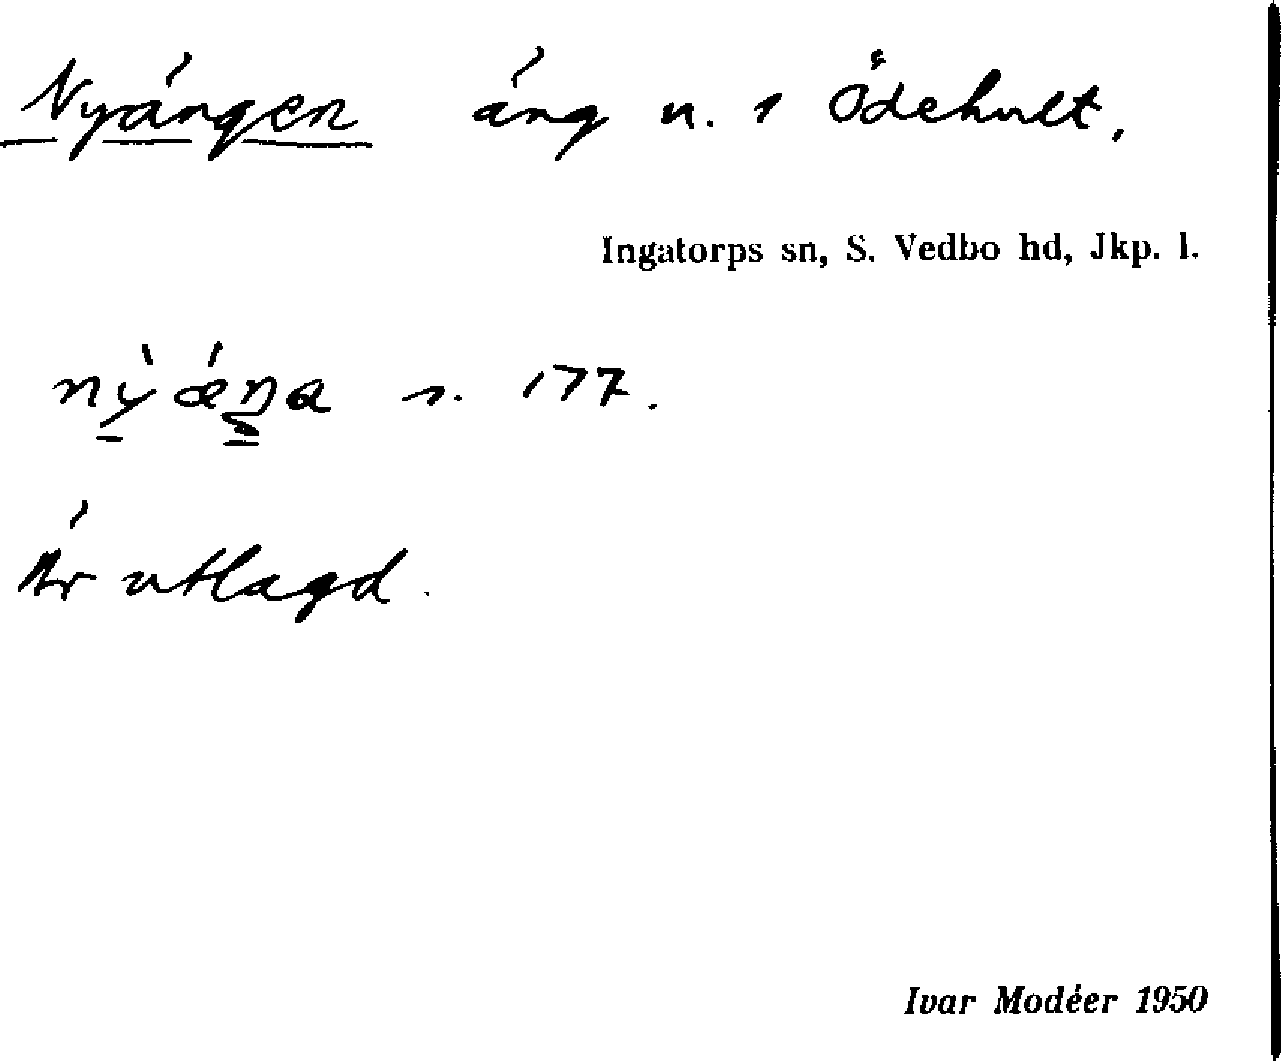 Nyängen äng n. 1 Ödehult.
Ingatorps sn, S. Vedbo hd, Jkp. l.
s. 177.
Är utlagd.
Ivar Modéer 1950